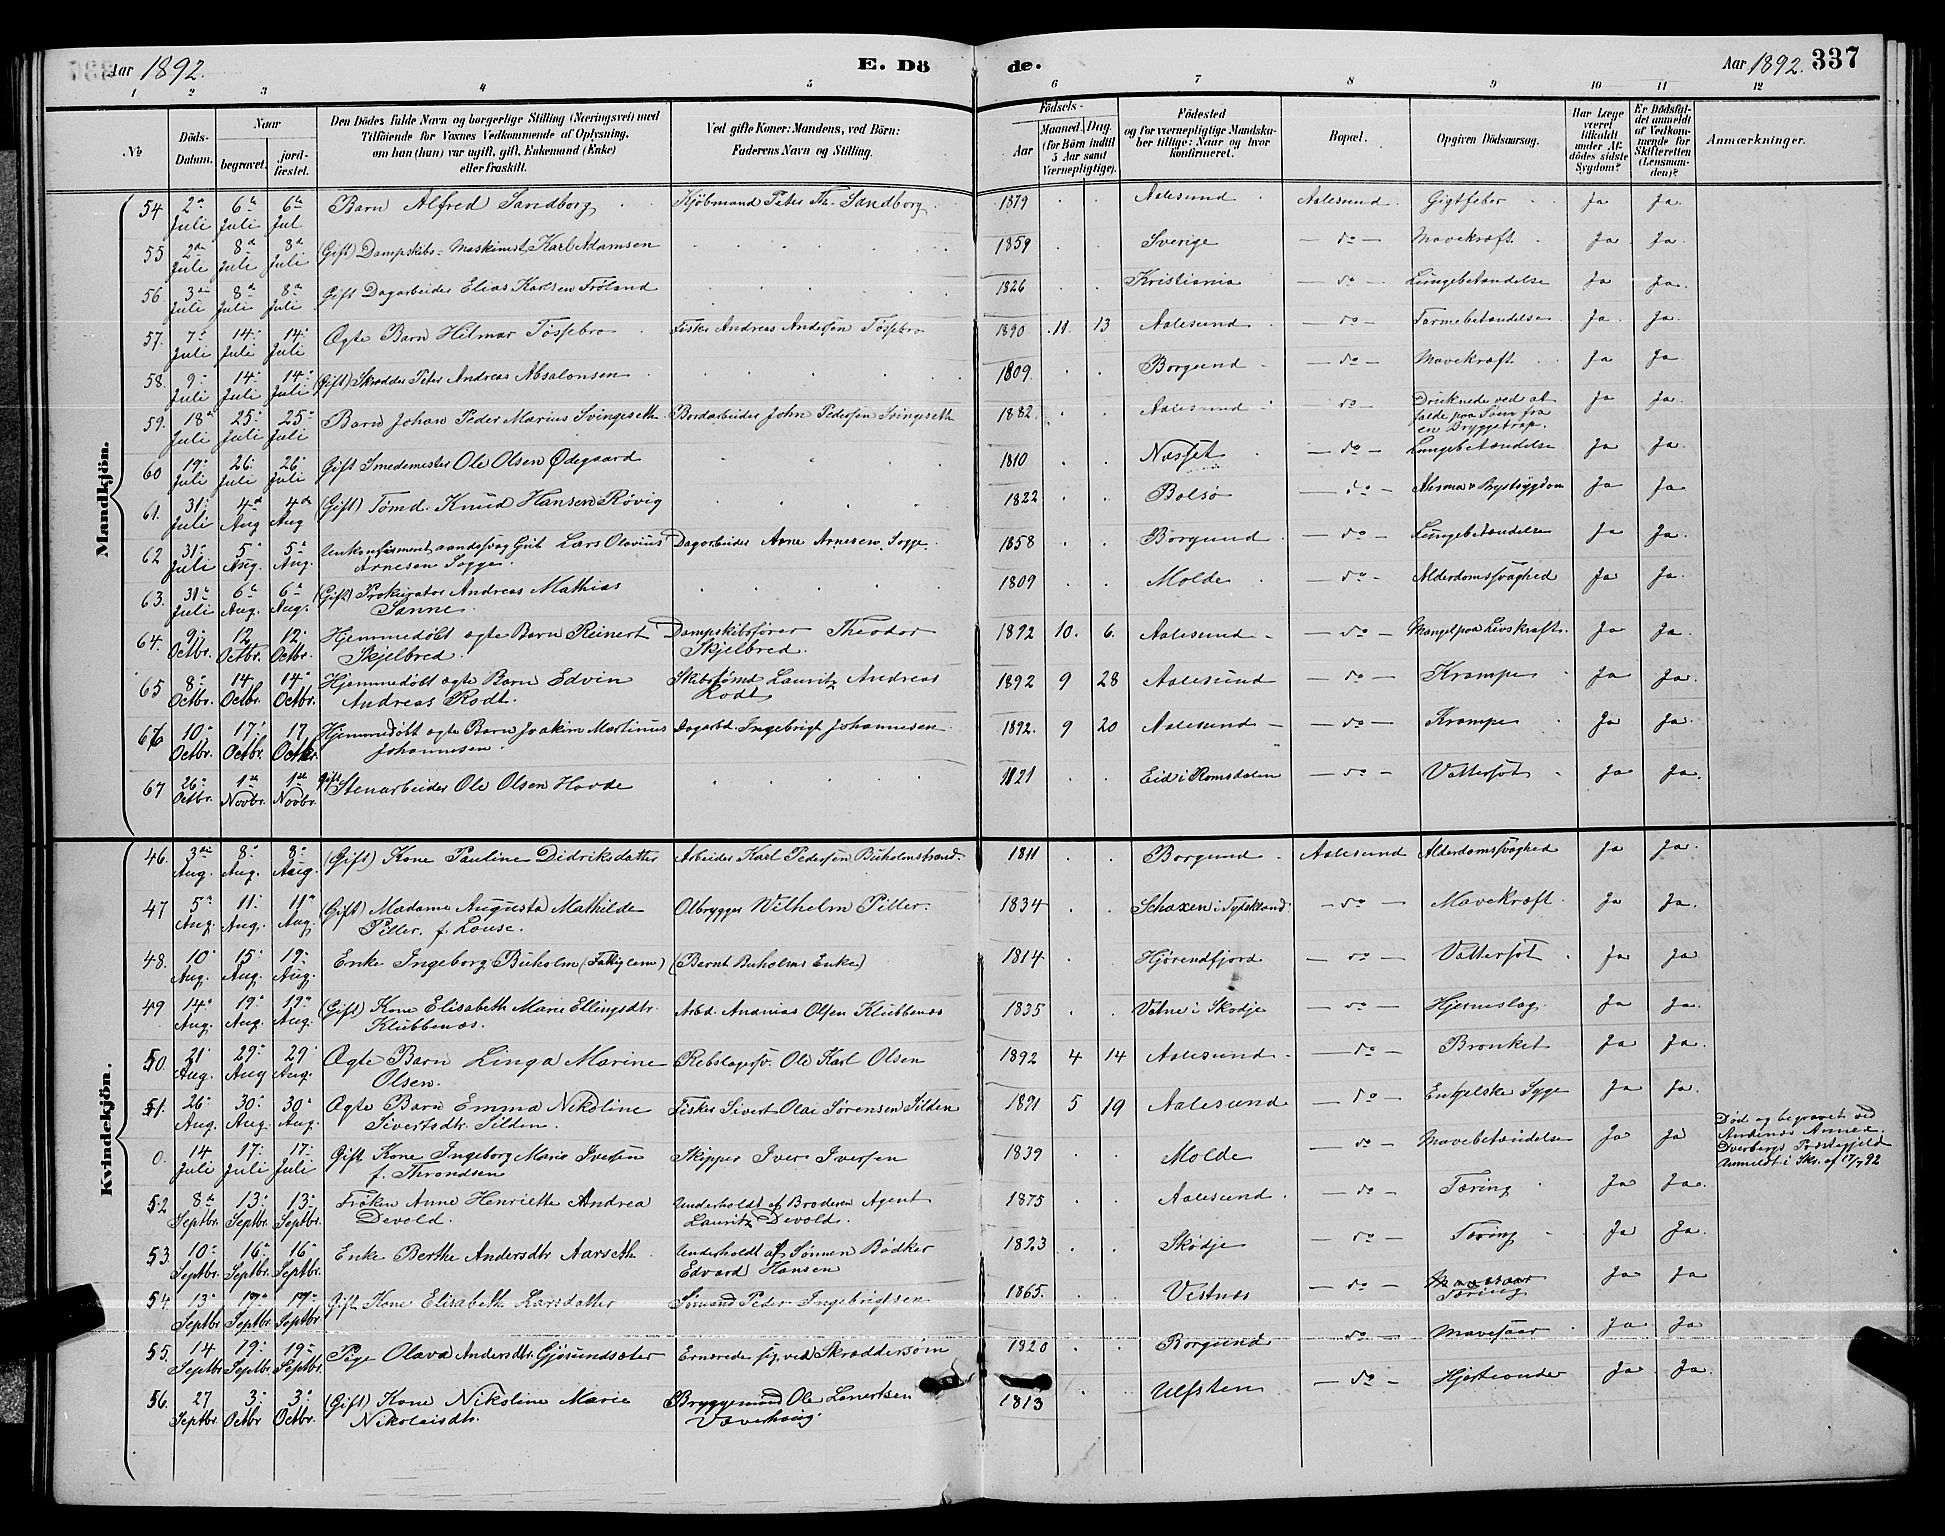 Aar 1892.
E. Døde.
Aar 1892. 337
1 2 3 4 5 6 7 8 9 10 11 12
No
Døds-Datum.
Naar
begravet.
jord-fæstet.
Den Dødes fulde Navn og borgerlige Stilling (Næringsvei) med
Tilføiende for Voxnes Vedkommende af Oplysning,
om han (hun) var ugift, gift, Enkemand (Enke)
eller fraskilt.
Ved gifte Koner: Mandens, ved Børn:
Faderens Navn og Stilling.
Fødsels-
Aar
Maaned. Dag.
(for Børn indtil
5 Aar samt
Værnepligtige).
Fødested
og for værnepligtige Mandska-
ber tillige: Naar og hvor
konfirmeret.
Bopæl.
Opgiven Dødsaarsag.
Har Læge
været
tilkaldt
under Af-
dødes sidste
Sygdom?
Er Dødsfal-
det anmeldt
af Vedkom-
mende for
Skifteretten
(Lensman-
den)?
Anmærkninger.
Mandkjön.
54 2de Juli 6te Juli 6te Jul Barn Alfred Sandborg Kjøbmand Peter Th. Sandborg 1879 Aalesund Aalesund Gigtfeber Ja Ja.
55 2den Juli 8de Juli 8de Juli (Gift) Dampskibs-Maskinist Karl Adamsen 1859 Sverige — do — Mavekræft Ja Ja.
56 3die Juli 8de Juli 8de Juli Gift Dagarbeider Elias Karlsen Frøland 1826 Kristiania — do — Lungebetændelse Ja Ja.
57. 7de Juli 14. Juli 14. Juli Ægte Barn Hilmar Tøssebro Fisker Andreas Andersen Tøssebro 1890 11 13 Aalesund — do — Tarmebetændelse Ja Ja.
58. 9. Juli 14. Juli 14. Juli (Gift) Skrædder Peter Andreas Absalonsen 1809 Borgund — do — Mavekræft Ja Ja.
59. 18de Juli 25. Juli 25. Juli Barn Johan Peder Marius Svingeseth Bordarbeider John Pedersen Svingeseth 1882 Aalesund do — Druknede ved at
falde paa Søen fra
en Bryggetrap. Ja Ja.
60 19. Juli 26. Juli 26. Juli Gift Smedemester Ole Olsen Ødegaard 1810 Næsset — do — Lungebetændelse Ja Ja.
61. 31. Juli 4de Aug 4de Aug (Gift) Tømd. Knud Hansen Røvig 1822 Bolsø — do — Brystsygdom Ja Ja.
62 31. Juli 5. Aug. 5. Aug. Unkonfirmeret aandssvag Gut Lars Olavius
Arnesen Sogge. Dagarbeider Arne Arnesen Sogge. 1858 Borgund — do — Lungebetændelse Ja Ja.
63. 31. Juli 6te Aug. 6te Aug. (Gift) Prokurator Andreas Mathias
Sanne 1809 Molde — do — Alderdomssvaghed Ja Ja.
64. 9. Octbr. 12 Octbr. 12. Octbr. Hjemmedøbt ægte Barn Reinert
Skjelbred. Dampskibsfører Theodor
Skjelbred. 1892 10. 6. Aalesund — do — Mangel paa Livskraft Ja Ja.
65 8. Octbr. 14 Octbr. 14. Octbr. Hjemmedøbt ægte Barn Edvin
Andreas Rodt. Skibstømd Lauritz Andreas
Rodt 1892 9 28 Aalesund — do — Krampe Ja Ja.
66 10. Octbr. 17. Octbr. 17. Octbr. Hjemmedøbt ægte Barn Joakim Martinus
Johannesen. Dagarbd. Ingebrigt Johannesen 1892. 9 20 Aalesund — do — Krampe Ja Ja.
67 26. Octbr. 1ste Novbr. 1ste Novbr. Gift Stenarbeider Ole Olsen Hovde 1821 Eid i Romsdalen — do — Vattersot Ja Ja.
Kvindekjön.
46. 3die Aug. 8. Aug. 8. Aug. (Gift) Kone Pauline Didriksdatter Arbeider Karl Pedersen Buholmstrand 1811 Borgund Aalesund Alderdomssvaghed Ja Ja.
47 5te Aug. 11. Aug. 11te Aug. (Gift) Madame Augusta Mathilde
Piller. f. Louse. Ølbrygger Wilhelm Piller. 1834 Schaxen i Tydskland — do — Mavekræft. Ja Ja.
48. 10. Aug. 15. Aug. 19. Aug. Enke Ingeborg Buholm (Fattiglem) (Bernt Buholms Enke) 1814 Hjørendfjord — do — Vattersot Ja Ja
49 14. Aug. 19. Aug. 19. Aug. (Gift) Kone Elisabeth Marie Ellingsdtr.
Klubbenæs. Arbd. Andrias Olsen Klubbenæs 1835 Vatne i Skodje — do — Hjerneslag. Ja Ja.
50. 21. Aug. 29. Aug 29. Aug. Ægte Barn Linga Marine
Olsen. Rebslagersv. Ole Karl Olsen 1892 4 14 Aalesund — do — Bronket Ja Ja.
51. 26. Aug. 30. Aug. 30. Aug. Ægte Barn Emma Nikoline
Sivertsdtr. Silden. Fisker Sivert Olai Sørensen Silden 1891 5 19 Aalesund — do — Engelske Syge Ja Ja.
0. 14 Juli 17. Juli 17. Juli Gift Kone Ingeborg Marie Iversen
f. Throndsen Skipper Iver Iversen 1839 Molde — do — Mavebetændelse Ja Ja Død og begravet ved
Andenæs Annex.
Dverbergs Præstegjeld
Anmeldt i Skr. af 17/7 92
52 8de Septbr. 13. Septbr. 13. Septbr. Frøken Anne Henriette Andrea
Devold. Underholdt af Broderen Agent
Lauritz Devold. 1875 Aalesund — do — Tæring Ja Ja.
53. 10. Septbr. 16. Septbr. 16 Septbr. Enke Berthe Andersdtr Aarseth Underholdt af Sønnen Bødker
Edvard Hansen 1823 Skodje — do — Tæring Ja Ja.
54. 13. Septbr. 17. Septbr. 17. Septbr. Gift Kone Elisabeth Larsdatter Sømand Peder Ingebrigtsen 1865. Vestnæs — do — Mavesaar
Tæring Ja Ja
55. 14 Septbr. 19. Septbr. 19. Septbr. Pige Olava Andersdtr Gjøsundsæter Ernærede sig ved Skræddersøm 1820 Borgund do — Mavesaar Ja Ja
56. 27 Septbr. 3. Octbr 3. Octbr. (Gift) Kone Nikoline Marie
Nikolaisdtr. Bryggemand Ole Lenertsen
Vaverhaug. 1813 Ulfsten — do — Hjerteonde Ja Ja.